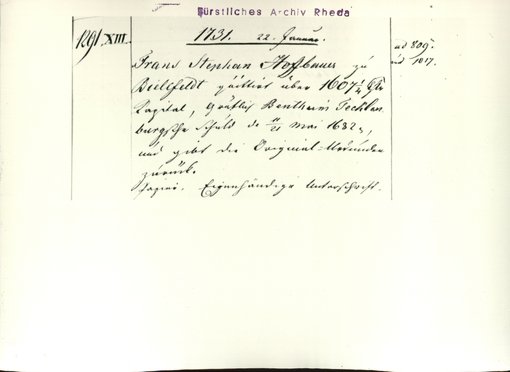 Fürstliches Archiv Rheda
1291 XIII.
1731. 22. Januar.
ad 809.
1017.
Franz Stephan Hoffbauer zu
Bielefeldt quittirt über 1607 1/2
Kapital, Gräflich Bentheim Tecklen
burgsche Schuld de 11/21 Mai 1682,
und gibt die Original-Urkunden
zurück.
Papier. Eigenhändige Unterschrift.